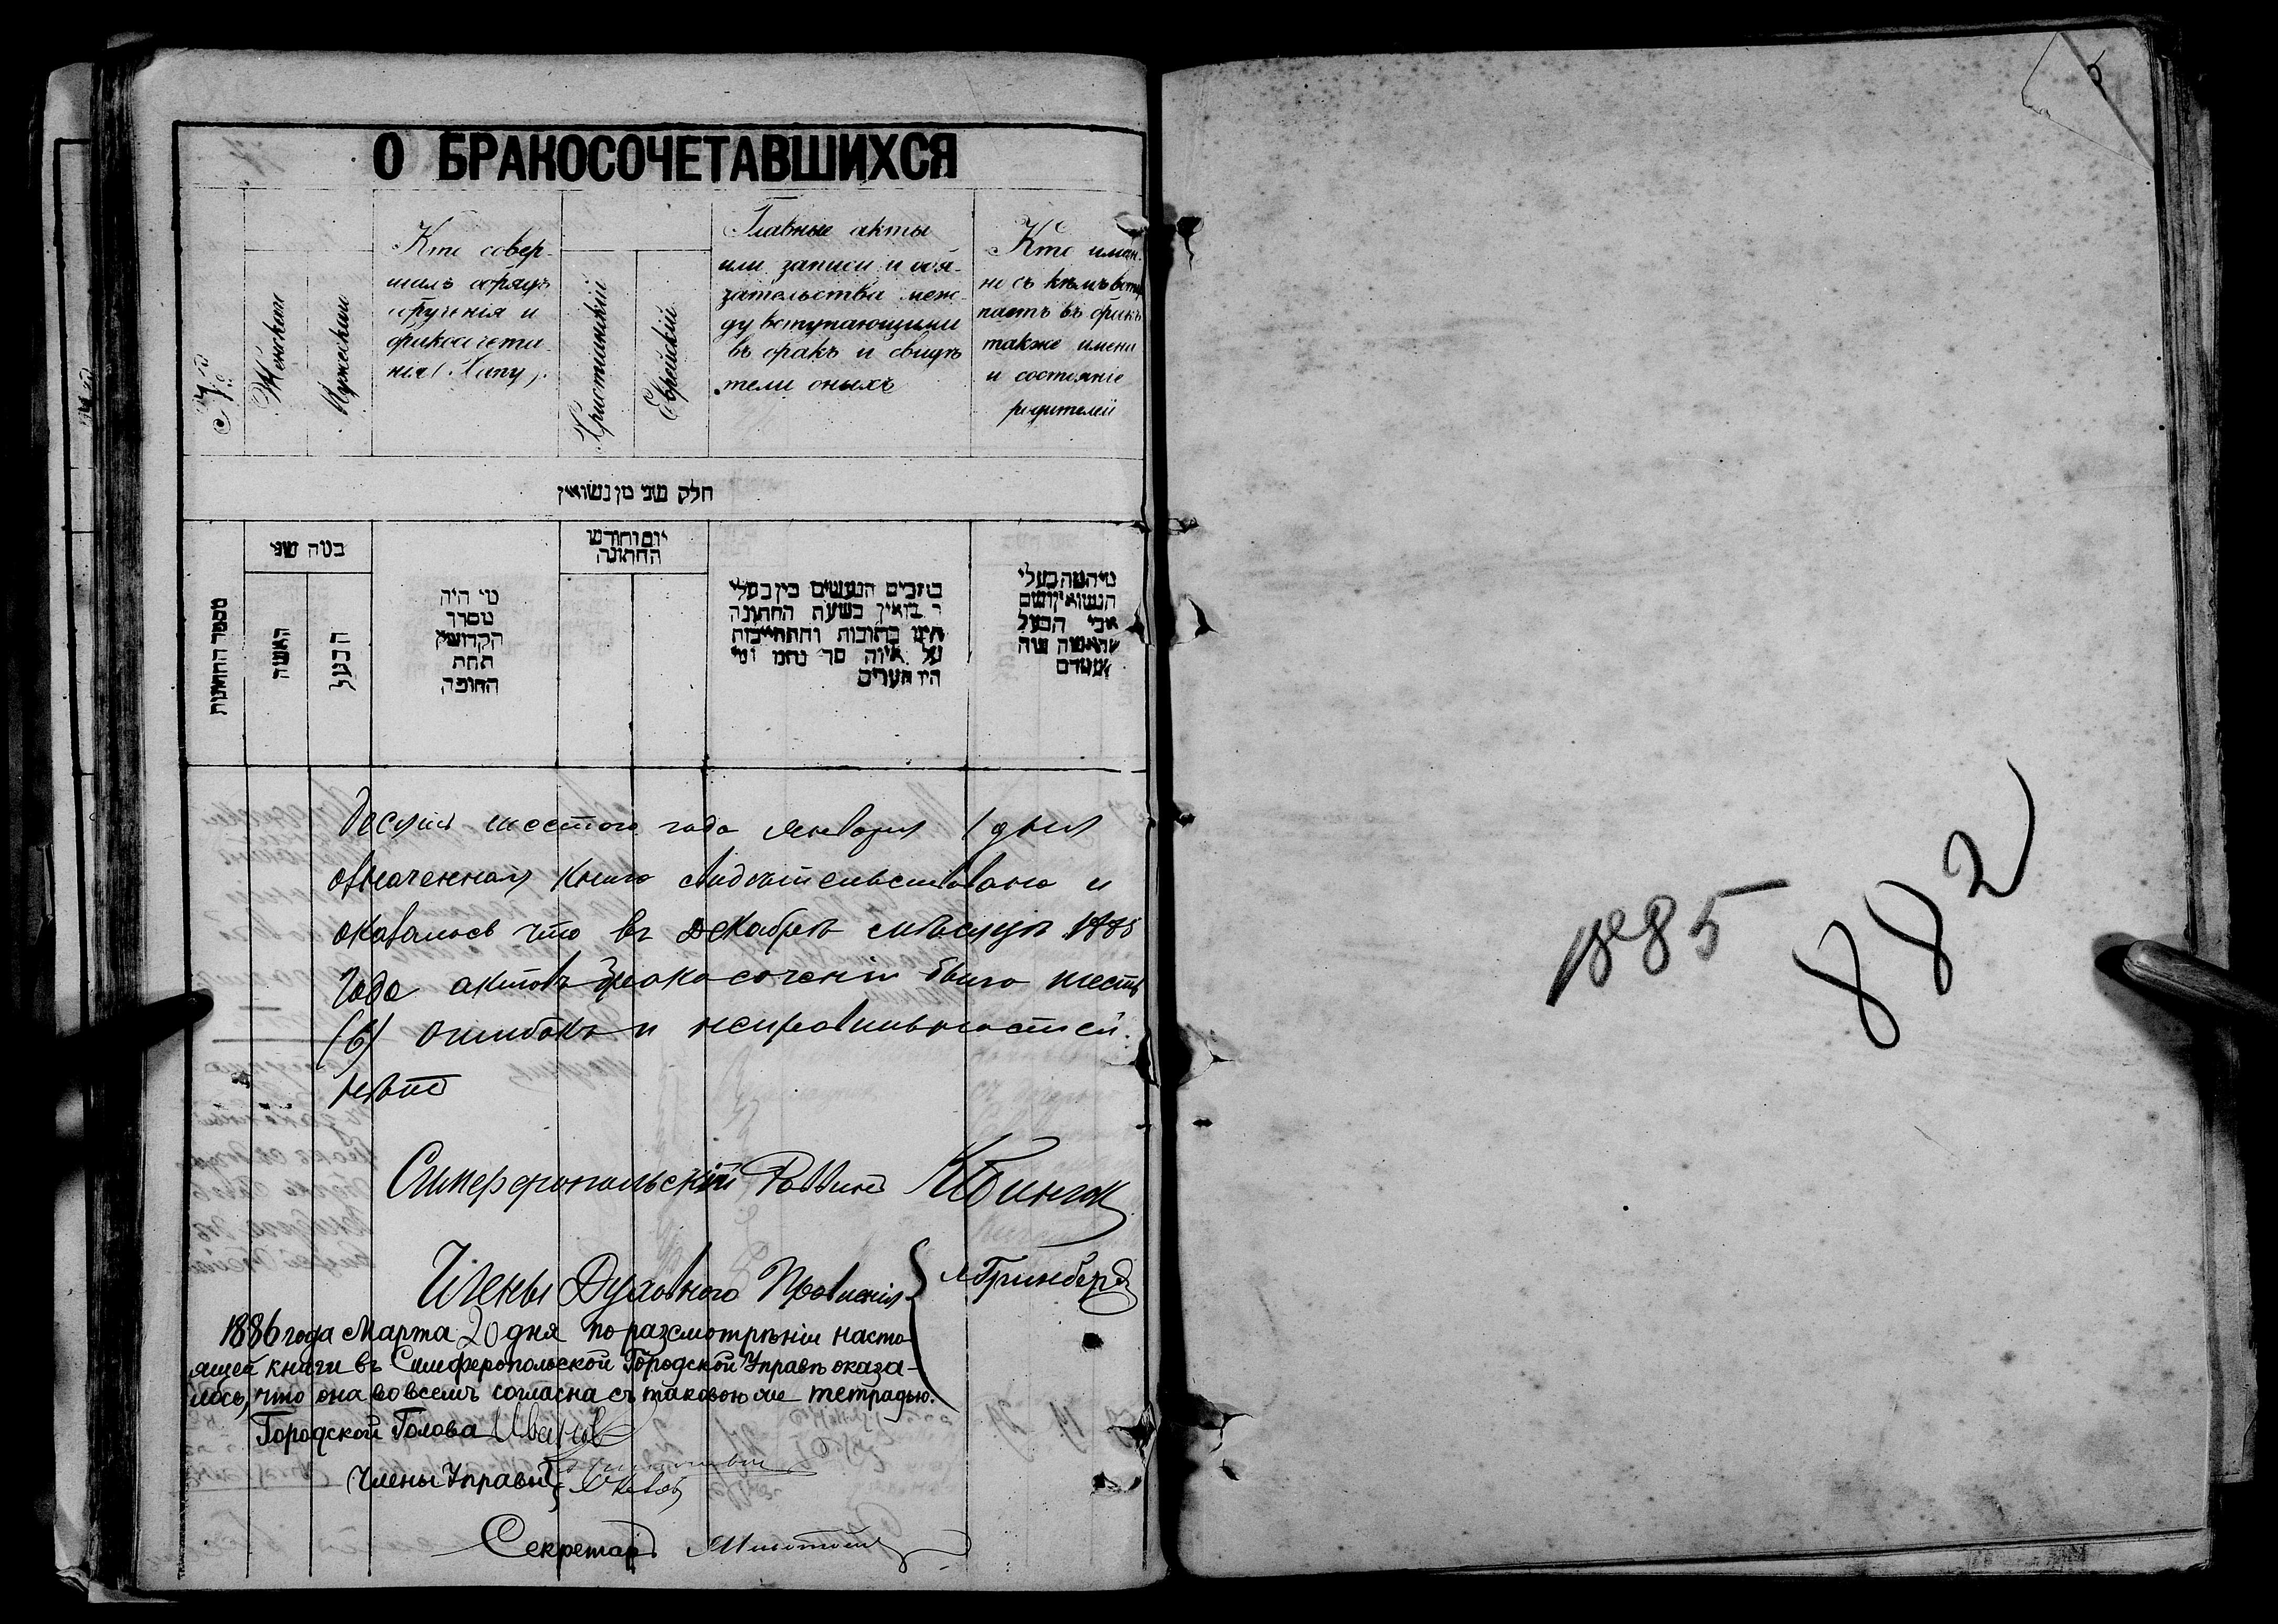 О БРАКОСОЧЕТАВШИХСЯ
№
Женскіи
Мужескіи
Кто совер-
шалъ обрядъ
обрученія и
бракосочета-
нія (Хупу).
Христіанскій
Еврейскій
Главные акты
или записи и обя-
зательства меж-
ду вступающими
въ бракъ и свидѣ
тели оныхъ
Кто имян-
но съ кѣмъ всту
паетъ въ бракъ
также имена
и состояніе
родителей
חלק שני מן נשואין
מספר החתונות
כמה שני
האשה
הבעל
מי היה
מסדר
הקדושין
תחת
החופה
יום וחודש
החתונה
הנעשים בין בעלי
בשעת החתונה
כתובות והתחייבות
על איזה סך ומי
היו העדים
הנשואין ושם
אבי הבעל
десятъ шестого года Января 1 дня
означенная книга свидѣтельствована и
оказалось что въ Декабрѣ мѣсяцѣ 1885
года актовъ бракосочений было шесть
(6) ошибокъ и неправильностей
нѣтъ
Симферопольскій Раввинъ
Члены Духовнаго Правленія
Гринбергъ
1886 года Марта 20 дня по разсмотрѣніи насто
ящей книги въ Симферопольской Городской Управѣ оказа-
лось, что она во всемъ согласна съ таковою же тетрадью.
Городской Голова Иванов
Члены Управы
Секретарь
1885
882